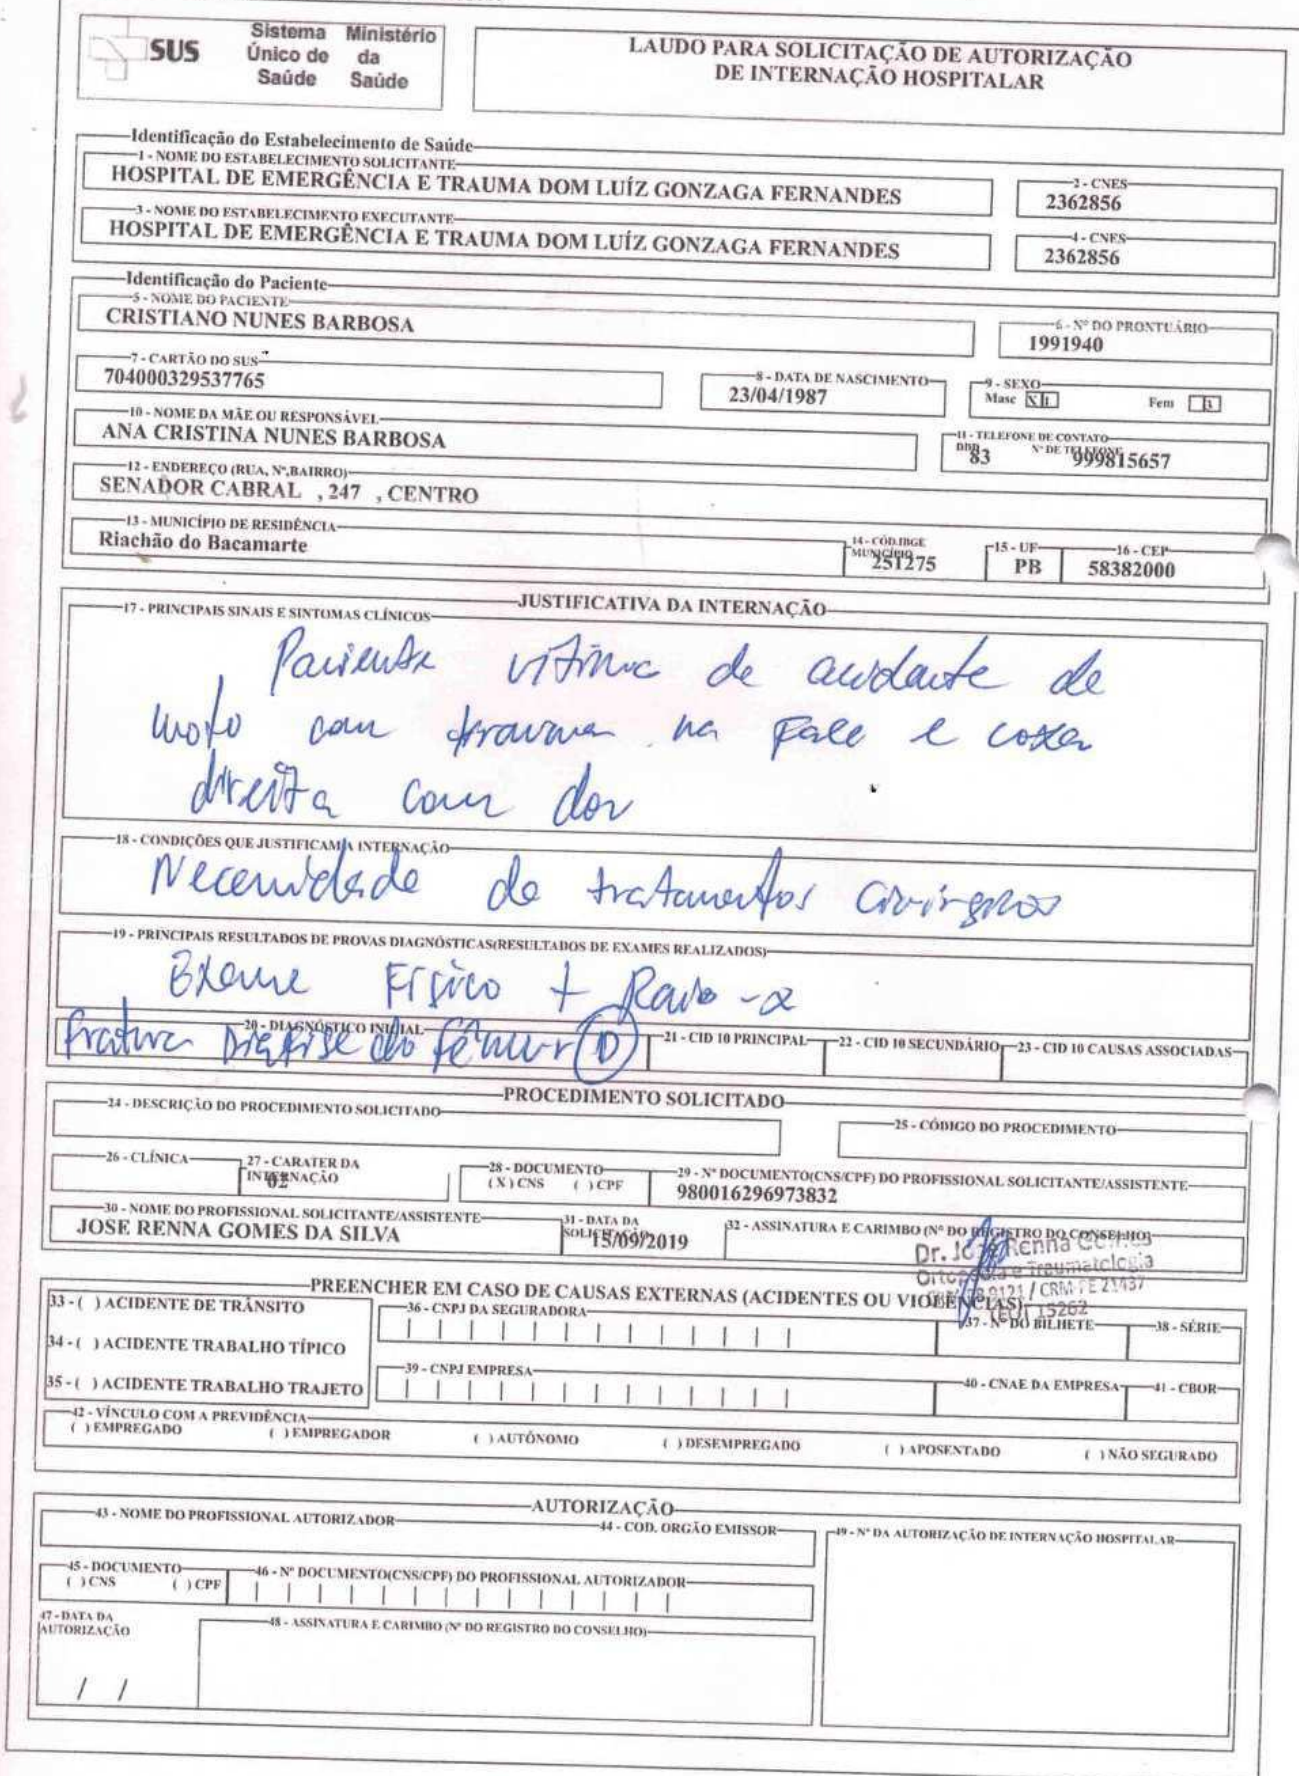 SUS
Sistema Único de Saúde
Ministério da Saúde
LAUDO PARA SOLICITAÇÃO DE AUTORIZAÇÃO
DE INTERNAÇÃO HOSPITALAR
Identificação do Estabelecimento de Saúde
1 - NOME DO ESTABELECIMENTO SOLICITANTE
HOSPITAL DE EMERGÊNCIA E TRAUMA DOM LUÍZ GONZAGA FERNANDES
2 - CNES
2362856
3 - NOME DO ESTABELECIMENTO EXECUTANTE
HOSPITAL DE EMERGÊNCIA E TRAUMA DOM LUÍZ GONZAGA FERNANDES
4 - CNES
2362856
Identificação do Paciente
5 - NOME DO PACIENTE
CRISTIANO NUNES BARBOSA
6 - Nº DO PRONTUÁRIO
1991940
7 - CARTÃO DO SUS
704000329537765
8 - DATA DE NASCIMENTO
23/04/1987
9 - SEXO
Masc X 1 Fem 3
10 - NOME DA MÃE OU RESPONSÁVEL
ANA CRISTINA NUNES BARBOSA
11 - TELEFONE DE CONTATO
DDD 83 Nº DE TELEFONE 999815657
12 - ENDEREÇO (RUA, Nº,BAIRRO)
SENADOR CABRAL , 247 , CENTRO
13 - MUNICÍPIO DE RESIDÊNCIA
Riachão do Bacamarte
14 - CÓD.IBGE MUNICÍPIO
251275
15 - UF
PB
16 - CEP
58382000
JUSTIFICATIVA DA INTERNAÇÃO
17 - PRINCIPAIS SINAIS E SINTOMAS CLÍNICOS
Paciente vítima de acidente de
moto com trauma na face e coxa
direita com dor
18 - CONDIÇÕES QUE JUSTIFICAM A INTERNAÇÃO
Necessidade de tratamentos cirúrgicos
19 - PRINCIPAIS RESULTADOS DE PROVAS DIAGNÓSTICAS(RESULTADOS DE EXAMES REALIZADOS)
Exame Físico + Raio-x
20 - DIAGNÓSTICO INICIAL
Fratura Diáfise do fêmur (D)
21 - CID 10 PRINCIPAL
22 - CID 10 SECUNDÁRIO
23 - CID 10 CAUSAS ASSOCIADAS
PROCEDIMENTO SOLICITADO
24 - DESCRIÇÃO DO PROCEDIMENTO SOLICITADO
25 - CÓDIGO DO PROCEDIMENTO
26 - CLÍNICA
27 - CARATER DA INTERNAÇÃO
02
28 - DOCUMENTO
( X ) CNS ( ) CPF
29 - Nº DOCUMENTO(CNS/CPF) DO PROFISSIONAL SOLICITANTE/ASSISTENTE
980016296973832
30 - NOME DO PROFISSIONAL SOLICITANTE/ASSISTENTE
JOSE RENNA GOMES DA SILVA
31 - DATA DA SOLICITAÇÃO
15/09/2019
32 - ASSINATURA E CARIMBO (Nº DO REGISTRO DO CONSELHO)
Dr. José Renna Gomes
Ortopedia e Traumatologia
9121 / CRM-PE 21437
TEOT 15262
PREENCHER EM CASO DE CAUSAS EXTERNAS (ACIDENTES OU VIOLÊNCIAS)
33 - ( ) ACIDENTE DE TRÂNSITO
36 - CNPJ DA SEGURADORA
37 - Nº DO BILHETE
38 - SÉRIE
34 - ( ) ACIDENTE TRABALHO TÍPICO
35 - ( ) ACIDENTE TRABALHO TRAJETO
39 - CNPJ EMPRESA
40 - CNAE DA EMPRESA
41 - CBOR
42 - VÍNCULO COM A PREVIDÊNCIA
( ) EMPREGADO ( ) EMPREGADOR ( ) AUTÔNOMO ( ) DESEMPREGADO ( ) APOSENTADO ( ) NÃO SEGURADO
AUTORIZAÇÃO
43 - NOME DO PROFISSIONAL AUTORIZADOR
44 - COD. ORGÃO EMISSOR
49 - Nº DA AUTORIZAÇÃO DE INTERNAÇÃO HOSPITALAR
45 - DOCUMENTO
( ) CNS ( ) CPF
46 - Nº DOCUMENTO(CNS/CPF) DO PROFISSIONAL AUTORIZADOR
47 - DATA DA AUTORIZAÇÃO
/ /
48 - ASSINATURA E CARIMBO (Nº DO REGISTRO DO CONSELHO)